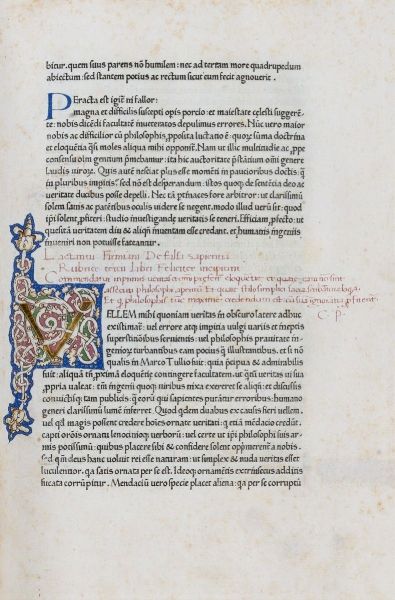 bitur. quem suus parens nõ humilem: nec ad terram more quadrupedum
abiectum: sed stantem potius ac rectum sicut eum fecit agnouerit.
PEracta est igit̃ ni fallor:
magna et difficilis suscepti opis porcio: et maiestate celesti suggerẽ
te: nobis dicẽdi facultatẽ inueteratos depulimus errores. Nũc uero maior
nobis ac difficilior cũ philosophis, pposita luctatio ẽ: quoꝝ sũma doctrina
et eloquẽtia q̃si moles aliqua mihi opponit̃. Nam ut illic multitudie ac, ppe
consensu oĩm gentium p̃mebamur: ita hic auctoritate p̃stãtium omĩ genere
laudis uiroꝝ. Quis autẽ nesciat plus esse momẽti in paucioribus doctis: q̃
in pluribus impitis: sed nõ est desperandum: istos quoq; de sentẽtia deo ac
veritate ducibus posse depelli. Nec tã p̃tinaces fore arbitror: ut clarissimũ
solem sanis ac patẽtibus oculis uidere se negent. modo illud verũ sit: quod
ip̃i solent, pfiteri: studio inuestigandę ueritatis se teneri. Efficiam, pfecto: ut
quesitã veritatem diu & aliqñ inuentam esse credant. et humanis ingeniis
inueniri non potuisse fateantur.
Lactantii Firmiani De falsa sapientia
Rubrice tercii libri Feliciter incipiunt
VELLEM mihi quoniam veritas in obscuro latere adhuc
existimat̃: uel errore atq; impitia vulgi uariis et ineptis
superstitiõibus seruientis: uel philosophis prauitate in-
genioꝝ turbantibus eam pocius q̃ illustrantibus. et si nõ
qualis in Marco Tullio fuit: quia p̃cipua & admirabilis
fuit: aliquã tñ, pximã eloquẽtię contingere facultatem. ut q̃tũ ueritas ui sua
, ppria ualeat: tm̃ ingenii quoq; uiribus nixa exereret se aliqñ: et discussis
conuictisq; tam publicis: q̃ eorũ qui sapientes putãtur erroribus: humano
generi clarissimũ lumẽ inferret. Quod q̃dem duabus ex causis fieri vellem.
uel q̃d magis possent credere hoĩes ornate ueritati: q̃ etiã mẽdacio credũt.
capti orõis ornatu lenocinioq; verborũ: uel certe ut ip̃i philosophi suis ar-
mis potissimũ: quibus placere sibi & confidere solent opp̃merent̃ a nobis.
Sed qm̃ deus hanc voluit rei esse naturam: ut simplex & nuda veritas esset
luculentior. q̃a satis ornata per se est. Ideoq; ornamẽtis extrinsecus additis
fucata corrũpitur. Mendaciũ vero specie placet aliena: q̃a per se corruptũ